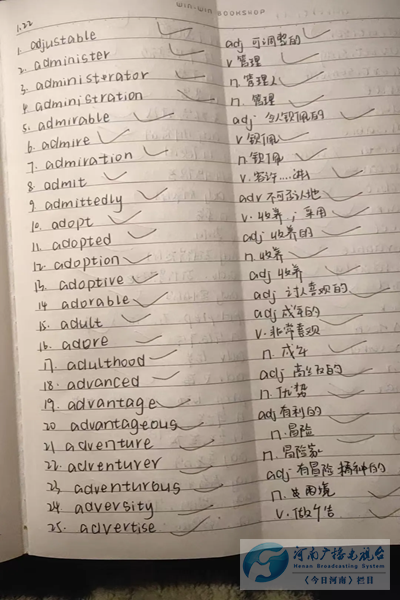 WIN-WIN BOOKSHOP
1.22
1. adjustable adj 可调整的
2. administer v 管理
3. administerator n. 管理人
4. administration n. 管理
5. admirable adj 令人钦佩的
6. admire v 钦佩
7. admiration n 钦佩
8. admit v.
9. admittedly adv 不可否认地
10. adopt v. 收养 ; 采用
11. adopted adj 收养的
12. adoption n 收养
13. adoptive adj 收养
14 adorable adj 讨人喜欢的
15. adult adj 成年的
16. adore v. 非常喜欢
17. adulthood n. 成年
18. advanced adj 高级的
19. advantage n. 优势
20 advantageous adj 有利的
21 adventure n. 冒险
22. adventurer n. 冒险家
23 adventurous adj 有冒险精神的
24 adversity n.
25. advertise v. 做广告
河南广播电视台
Henan Broadcasting System
《今日河南》栏目